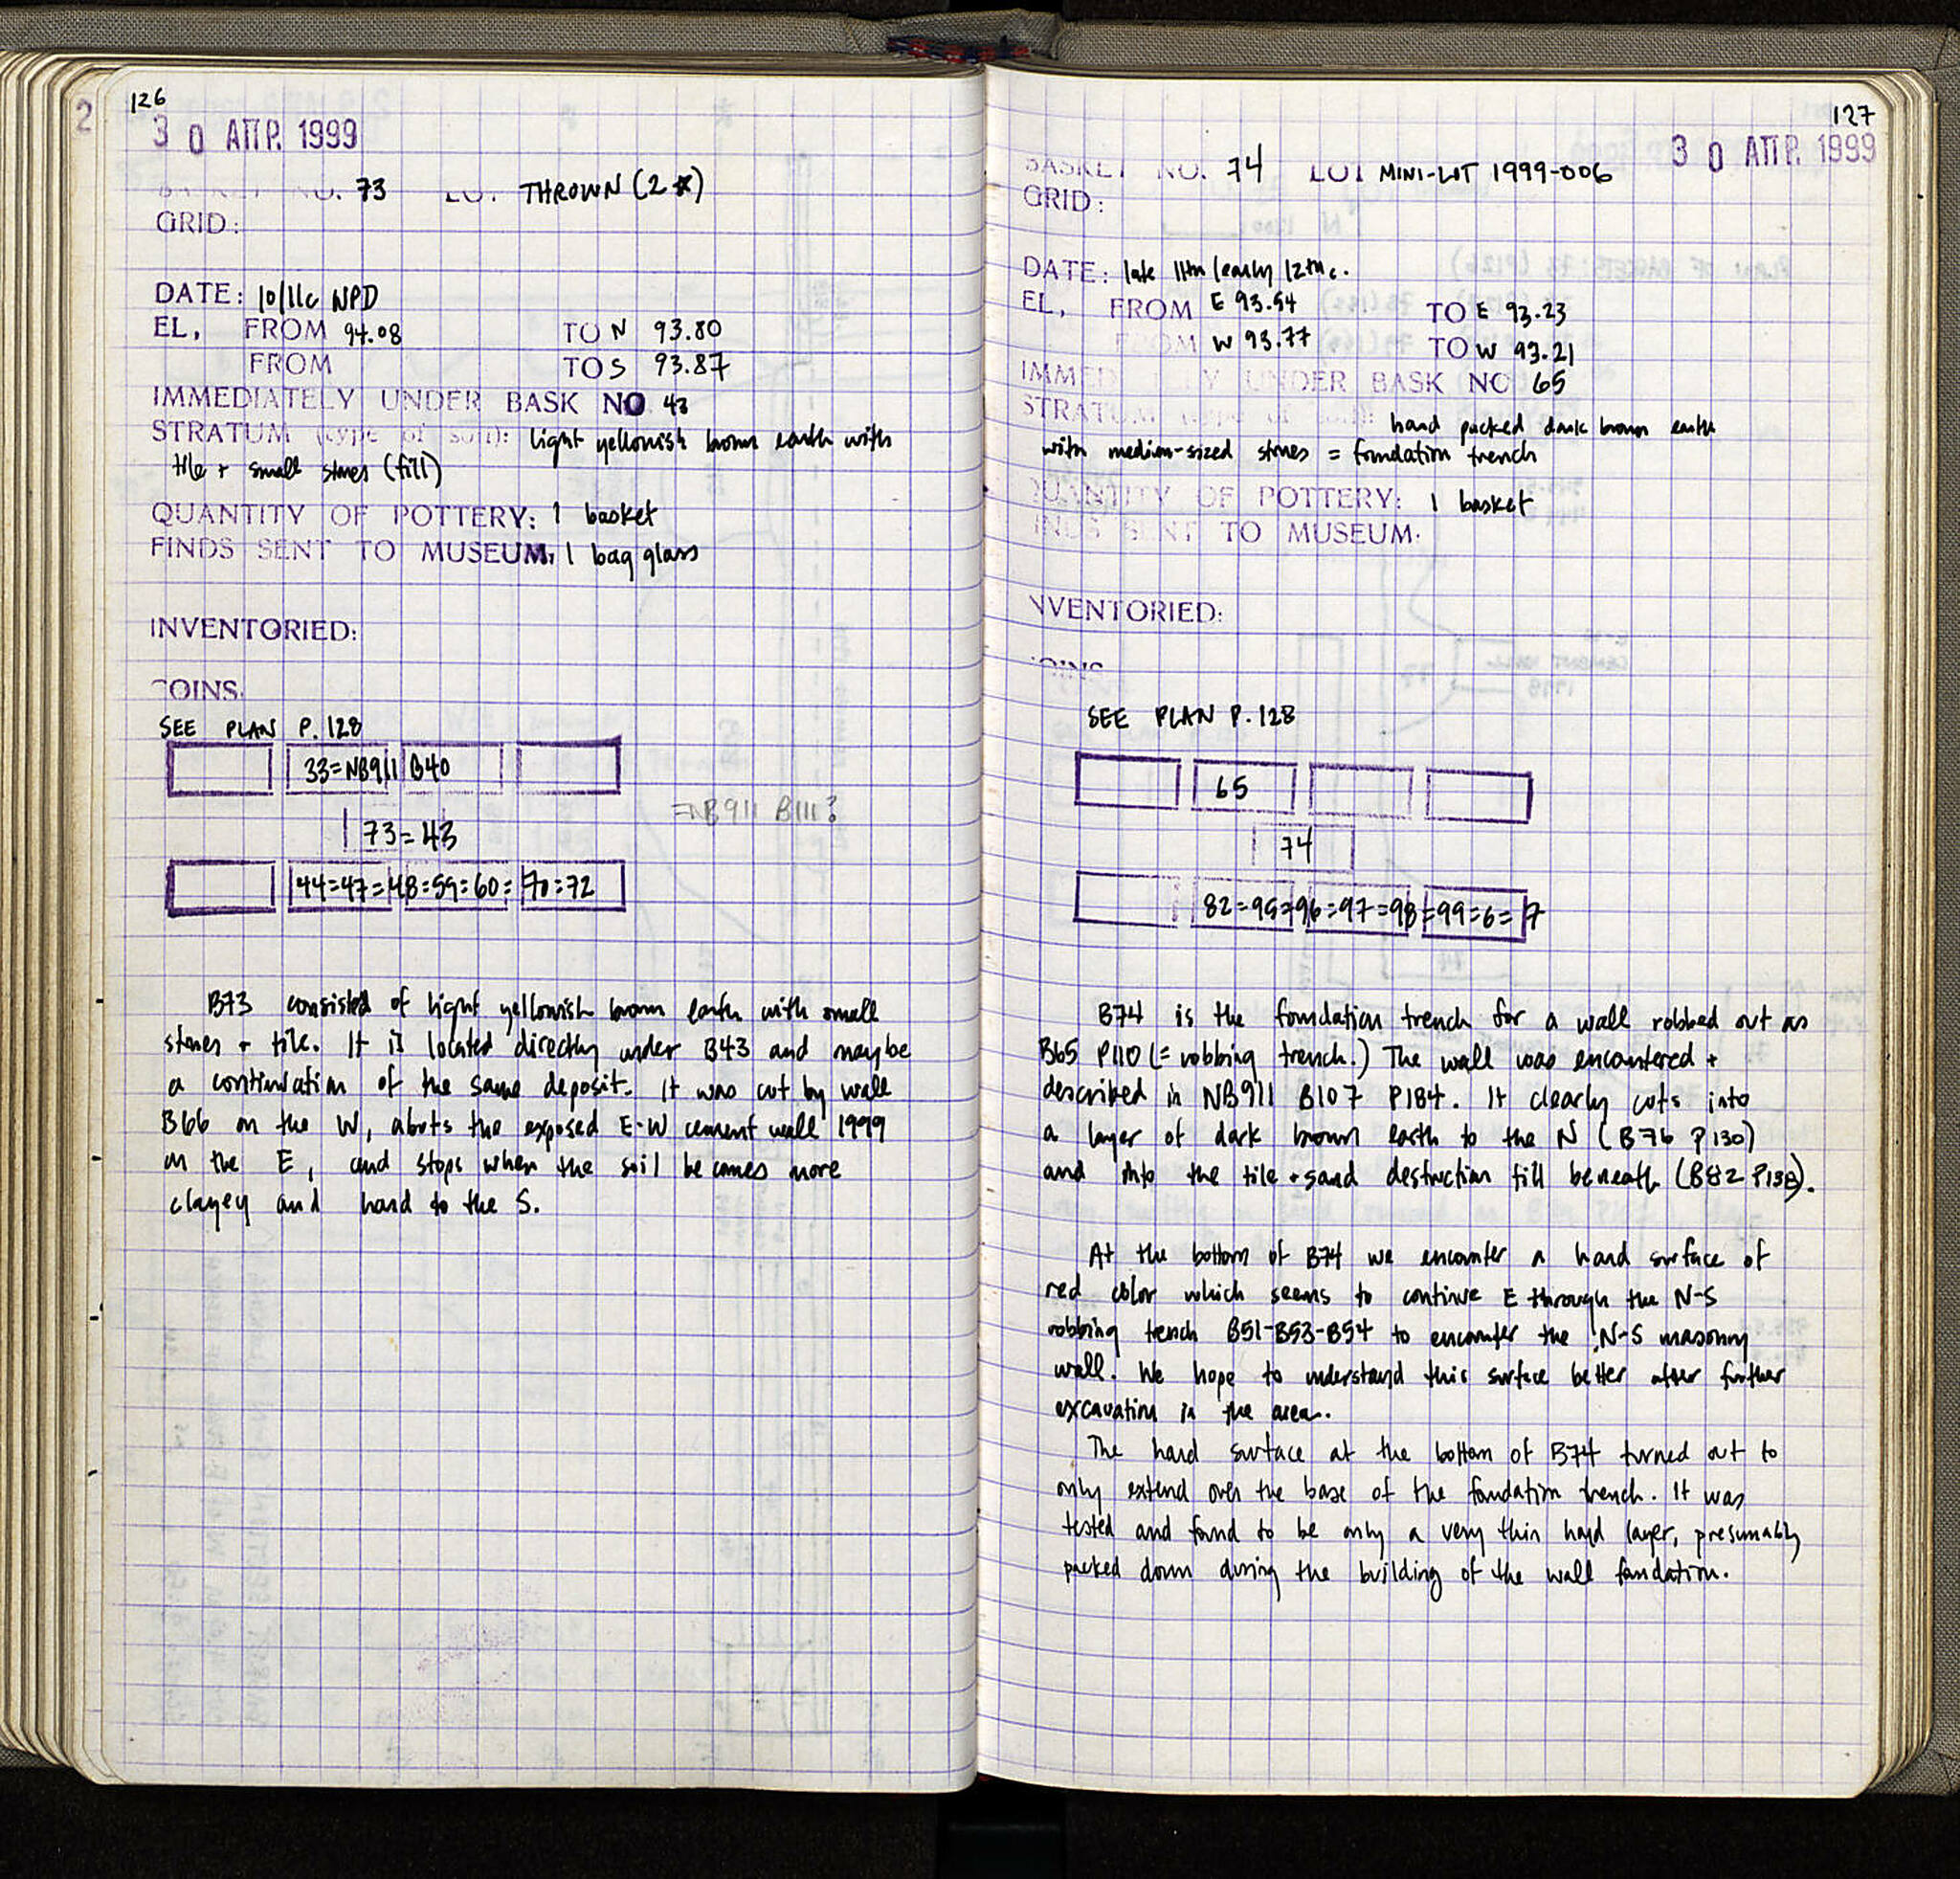 2
126
3 0 ΑΠΡ. 1999
BASKET NO. 73 LOT THROWN (2*)
GRID:
DATE: 10/11c NPD
EL, FROM 94.08 TO N 93.80
FROM TO S 93.87
IMMEDIATELY UNDER BASK NO 43
STRATUM (type of soil): light yellowish brown earth with
tile + small stones (fill)
QUANTITY OF POTTERY: 1 basket
FINDS SENT TO MUSEUM: 1 bag glass
INVENTORIED:
COINS.
SEE PLAN P. 128
33=NB911 B40
73=43
=NB911 B111?
44=47=48=59=60=70=72
B73 consisted of light yellowish brown earth with small
stones + tile. It is located directly under B43 and maybe
a continuation of the same deposit. It was cut by wall
B66 on the W, abuts the exposed E-W cement wall 1999
on the E, and stops when the soil becomes more
clayey and hard to the S.
127
3 0 ΑΠΡ. 1999
BASKET NO. 74 LOT MINI-LOT 1999-006
GRID:
DATE: late 11th/early 12th c.
EL, FROM E 93.54 TO E 93.23
FROM W 93.77 TO W 93.21
IMMEDIATELY UNDER BASK NO 65
STRATUM (type of soil): hard packed dark brown earth
with medium-sized stones = foundation trench
QUANTITY OF POTTERY: 1 basket
FINDS SENT TO MUSEUM.
INVENTORIED:
COINS
SEE PLAN P. 128
65
74
82=95=96=97=98=99=6=7
B74 is the foundation trench for a wall robbed out as
B65 P110 (= robbing trench.) The wall was encountered +
described in NB911 B107 P184. It clearly cuts into
a layer of dark brown earth to the N (B76 P130)
and into the tile + sand destruction fill beneath (B82 P138).
At the bottom of B74 we encounter a hard surface of
red color which seems to continue E through the N-S
robbing trench B51-B53-B54 to encounter the N-S masonry
wall. We hope to understand this surface better after further
excavation in the area.
The hard surface at the bottom of B74 turned out to
only extend over the base of the foundation trench. It was
tested and found to be only a very thin hard layer, presumably
packed down during the building of the wall foundation.